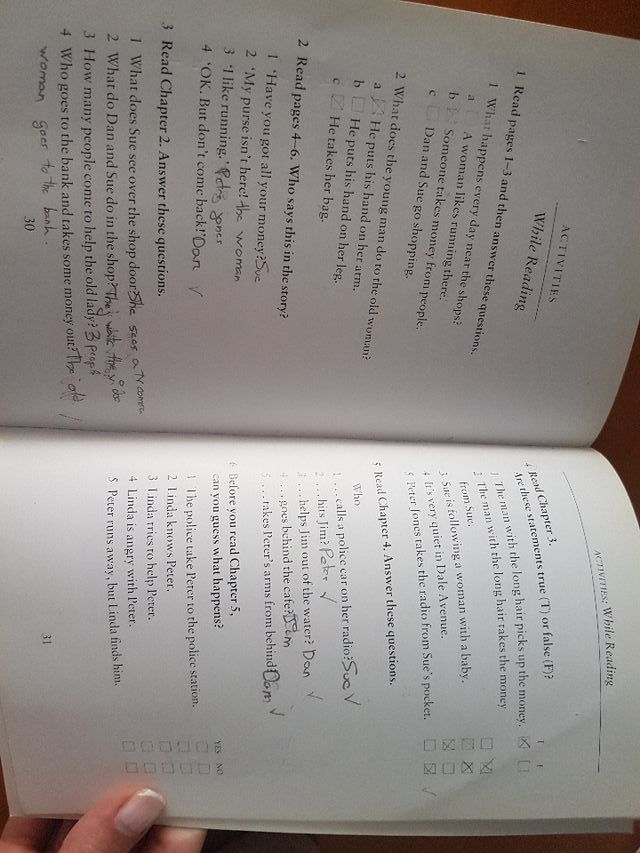 ACTIVITIES
While Reading
1 Read pages 1–3 and then answer these questions.
1 What happens every day near the shops?
a A woman likes running there.
b Someone takes money from people.
c Dan and Sue go shopping.
2 What does the young man do to the old woman?
a He puts his hand on her arm.
b He puts his hand on her leg.
c He takes her bag.
2 Read pages 4–6. Who says this in the story?
1 'Have you got all your money? Sue
2 'My purse isn't here! the woman
3 'I like running.' Peter Jones
4 'OK. But don't come back!' Dan
3 Read Chapter 2. Answer these questions.
1 What does Sue see over the shop door? She sees a TV camera
2 What do Dan and Sue do in the shop? They
3 How many people come to help the old lady? 3 people
4 Who goes to the bank and takes some money out? The old
woman goes to the bank.
30
ACTIVITIES: While Reading
4 Read Chapter 3.
Are these statements true (T) or false (F)?
T F
1 The man with the long hair picks up the money.
2 The man with the long hair takes the money
from Sue.
3 Sue is following a woman with a baby.
4 It's very quiet in Dale Avenue.
5 Peter Jones takes the radio from Sue's pocket.
5 Read Chapter 4. Answer these questions.
Who
1 ...calls a police car on her radio? Sue
2 ...hits Jim? Peter
3 ...helps Jim out of the water? Dan
4 ...goes behind the cafe?
5 ...takes Peter's arms from behind?
6 Before you read Chapter 5,
can you guess what happens?
YES NO
1 The police take Peter to the police station.
2 Linda knows Peter.
3 Linda tries to help Peter.
4 Linda is angry with Peter.
5 Peter runs away, but Linda finds him.
31